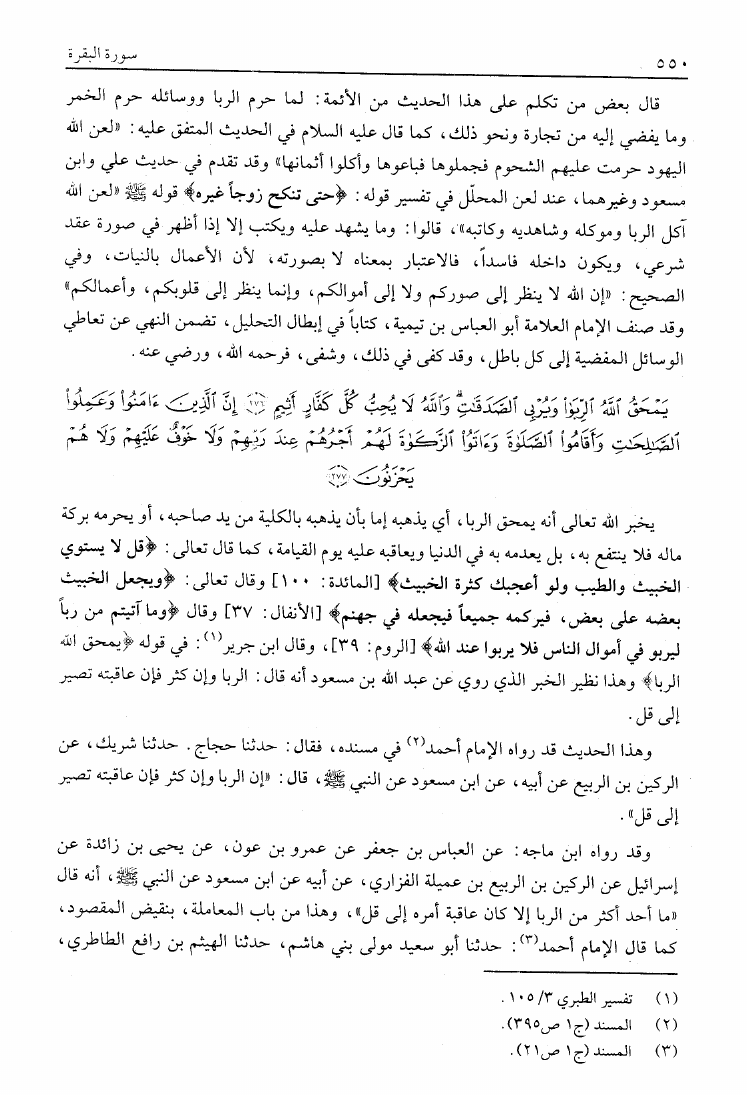 ٥٥٠ سورة البقرة
قال بعض من تكلم على هذا الحديث من الأئمة: لما حرم الربا ووسائله حرم الخمر
وما يفضي إليه من تجارة ونحو ذلك، كما قال عليه السلام في الحديث المتفق عليه: «لعن الله
اليهود حرمت عليهم الشحوم فجملوها فباعوها وأكلوا أثمانها» وقد تقدم في حديث علي وابن
مسعود وغيرهما، عند لعن المحلّل في تفسير قوله: ﴿حتى تنكح زوجاً غيره﴾ قوله ﷺ «لعن الله
آكل الربا وموكله وشاهديه وكاتبه»، قالوا: وما يشهد عليه ويكتب إلا إذا أظهر في صورة عقد
شرعي، ويكون داخله فاسداً، فالاعتبار بمعناه لا بصورته، لأن الأعمال بالنيات، وفي
الصحيح: «إن الله لا ينظر إلى صوركم ولا إلى أموالكم، وإنما ينظر إلى قلوبكم، وأعمالكم»
وقد صنف الإمام العلامة أبو العباس بن تيمية، كتاباً في إبطال التحليل، تضمن النهي عن تعاطي
الوسائل المفضية إلى كل باطل، وقد كفى في ذلك، وشفى، فرحمه الله، ورضي عنه.
يَمْحَقُ ٱللَّهُ ٱلرِّبَوٰا۟ وَيُرْبِى ٱلصَّدَقَـٰتِ ۗ وَٱللَّهُ لَا يُحِبُّ كُلَّ كَفَّارٍ أَثِيمٍ ﴿٢٧٦﴾ إِنَّ ٱلَّذِينَ ءَامَنُوا۟ وَعَمِلُوا۟
ٱلصَّـٰلِحَـٰتِ وَأَقَامُوا۟ ٱلصَّلَوٰةَ وَءَاتَوُا۟ ٱلزَّكَوٰةَ لَهُمْ أَجْرُهُمْ عِندَ رَبِّهِمْ وَلَا خَوْفٌ عَلَيْهِمْ وَلَا هُمْ
يَحْزَنُونَ ﴿٢٧٧﴾
يخبر الله تعالى أنه يمحق الربا، أي يذهبه إما بأن يذهبه بالكلية من يد صاحبه، أو يحرمه بركة
ماله فلا ينتفع به، بل يعدمه به في الدنيا ويعاقبه عليه يوم القيامة، كما قال تعالى: ﴿قل لا يستوي
الخبيث والطيب ولو أعجبك كثرة الخبيث﴾ [المائدة: ١٠٠] وقال تعالى: ﴿ويجعل الخبيث
بعضه على بعض، فيركمه جميعاً فيجعله في جهنم﴾ [الأنفال: ٣٧] وقال ﴿وما آتيتم من رباً
ليربو في أموال الناس فلا يربوا عند الله﴾ [الروم: ٣٩]، وقال ابن جرير(١): في قوله ﴿يمحق الله
الربا﴾ وهذا نظير الخبر الذي روي عن عبد الله بن مسعود أنه قال: الربا وإن كثر فإن عاقبته تصير
إلى قل.
وهذا الحديث قد رواه الإمام أحمد(٢) في مسنده، فقال: حدثنا حجاج. حدثنا شريك، عن
الركين بن الربيع عن أبيه، عن ابن مسعود عن النبي ﷺ، قال: «إن الربا وإن كثر فإن عاقبته تصير
إلى قل».
وقد رواه ابن ماجه: عن العباس بن جعفر عن عمرو بن عون، عن يحيى بن زائدة عن
إسرائيل عن الركين بن الربيع بن عميلة الفزاري، عن أبيه عن ابن مسعود عن النبي ﷺ، أنه قال
«ما أحد أكثر من الربا إلا كان عاقبة أمره إلى قل»، وهذا من باب المعاملة، بنقيض المقصود،
كما قال الإمام أحمد(٣): حدثنا أبو سعيد مولى بني هاشم، حدثنا الهيثم بن رافع الطاطري،
(١) تفسير الطبري ٣/ ١٠٥.
(٢) المسند (ج١ ص٣٩٥).
(٣) المسند (ج١ ص٢١).